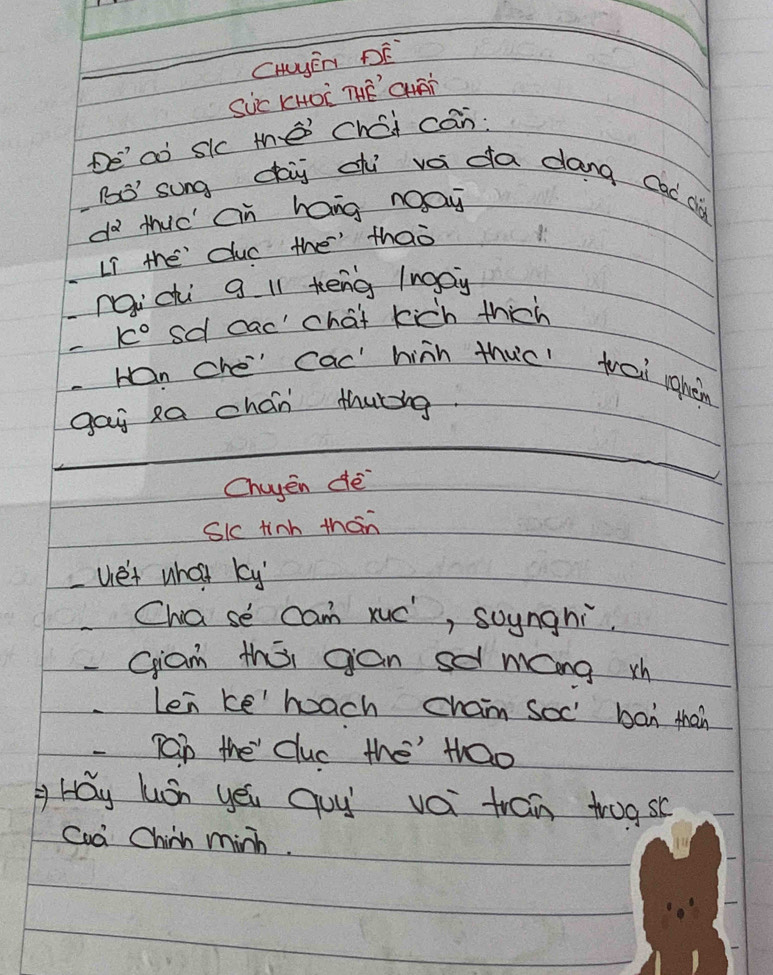 CHUYÊN ĐỀ
SỨC KHOẺ THỂ CHẤT
Để có sk thể chất cần:
- Bổ sung đầy đủ và đa dạng các chất
d² thức ăn hàng ngày
- Lí thể dục thể thao
- ngủ đủ 9_11 tiếng /ngày
- K° sd các chất kích thích
- Hạn chế các hình thức trải nghiệm
gây ra chấn thương.
Chuyên đề
Sk tinh thần
- Viết nhật ký
- Chia sẻ cảm xúc, suy nghĩ.
- Giảm thời gian sd mạng xh
- Lên kế hoạch chăm sóc bản thân
- Tập thể dục thể thao
⇒ Hãy luôn yêu quý và trân trọg sk
của chính mình.